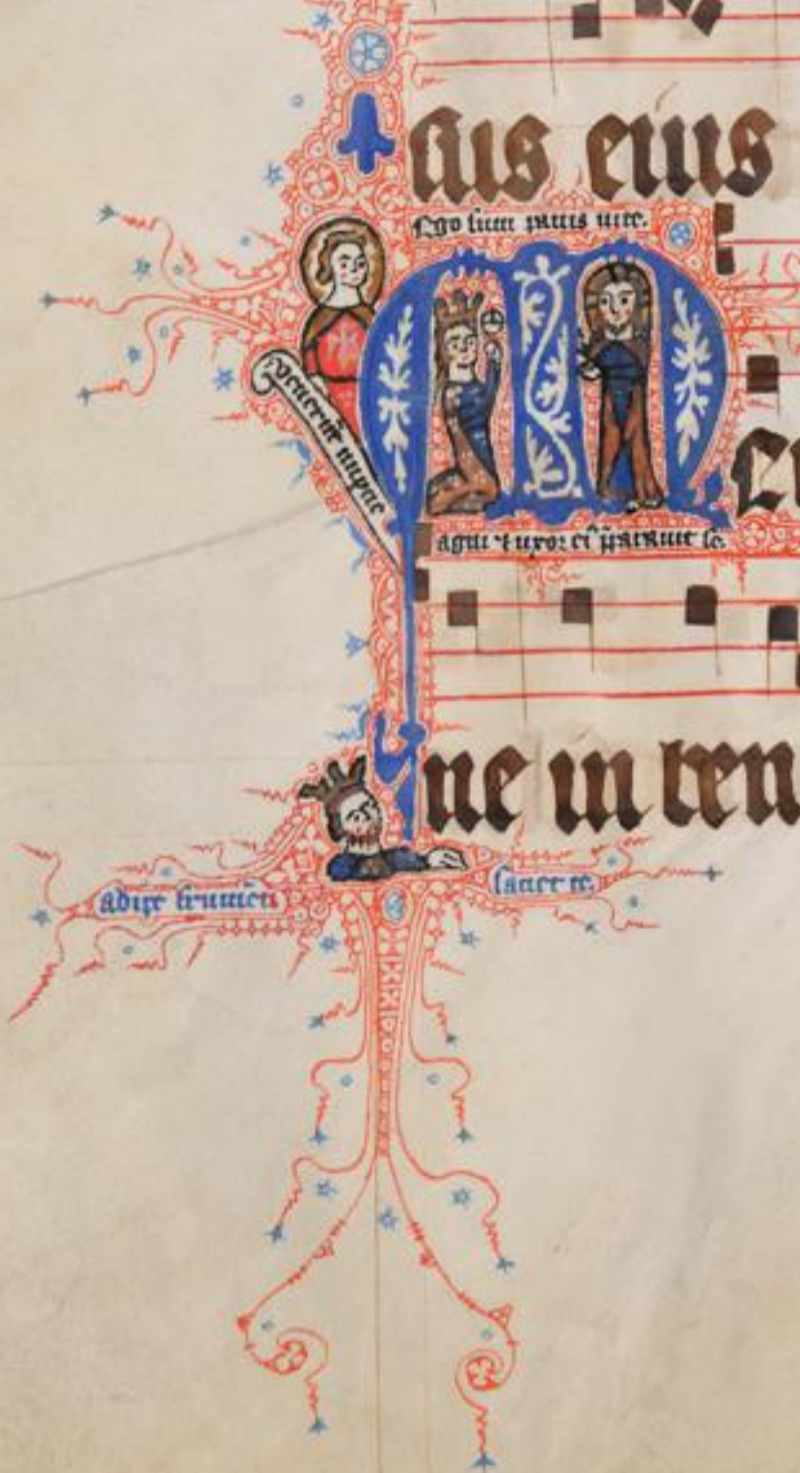 tus eius
Ego sum panis uite.
venerunt nupcie
agni et uxor ei p̄parauit se.
ne in ten
adipe frumēti
saciet te.